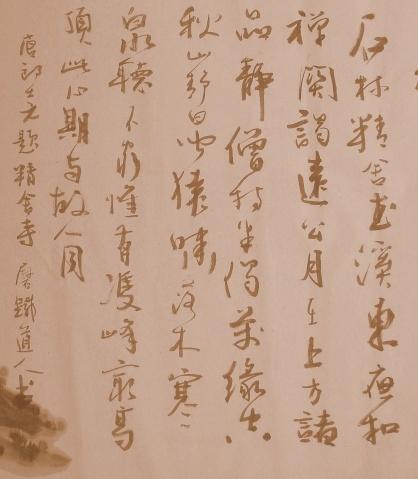 石林精舍武溪東夜扣
禪關謁遠公月在上方諸
品靜僧持半偈萬緣空
秋山野日聞猿嘯落木寒
泉聽不窮惟有雙峰最高
頂此心期与故人同
唐郎士元題精舍寺 磨鐵道人書